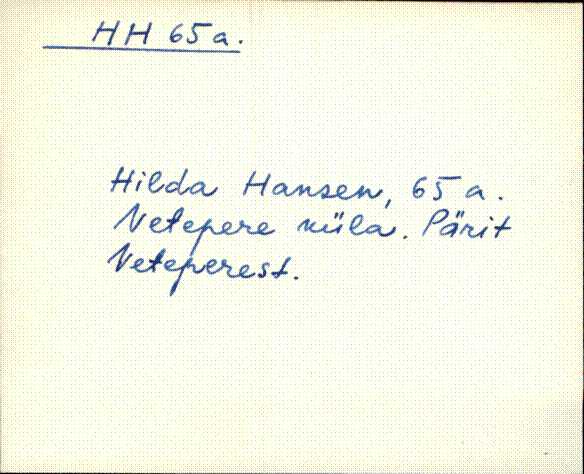 HH 65 a.
Hilda Hansen, 65 a.
Vetepere küla. Pärit
Veteperest.